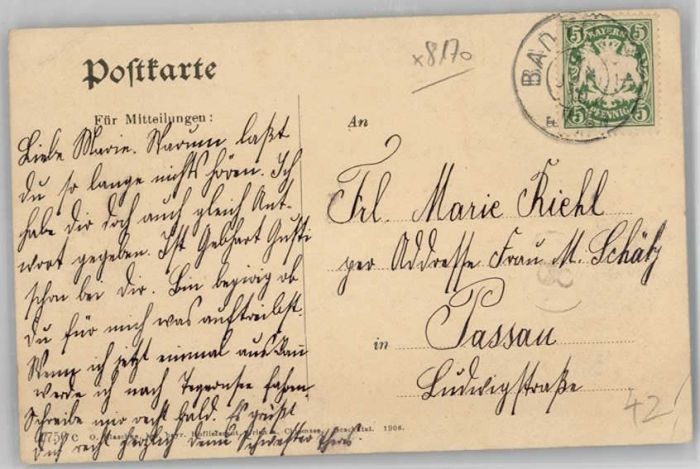 Postkarte
Für Mitteilungen:
Liebe Marie. Warum laßt
du so lange nichts hören. Ich
habe dir doch auch gleich Ant-
wort gegeben. Ist Gebhart Gusti
schon bei dir. Bin begirig ob
du für mich was auftreibst.
Wenn ich jetzt einmal aus kann
werde ich nach Tegernsee fahren.
Schreibe mir recht bald. Es grüßt
dich recht herzlich deine Schwester
1908.
x8170
BAYERN
5 5
5 PFENNIG 5
An
Frl. Marie Riehl
per Addresse Frau M. Schätz
in Passau
Ludwigstraße
42